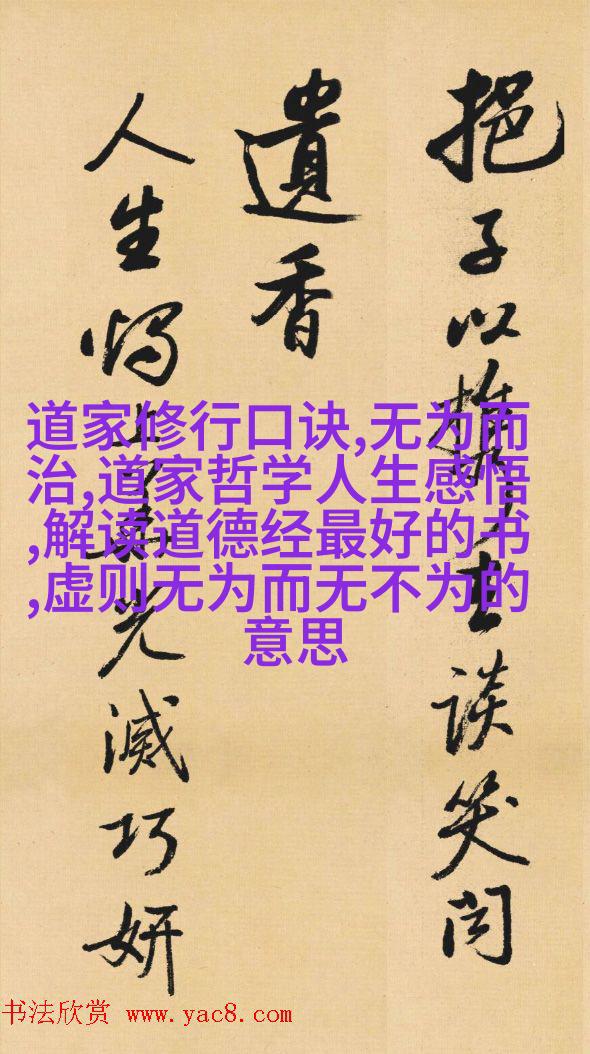 挹子以
談笑
遺香
人生
光滅巧妍
道家修行口诀,无为而
治,道家哲学人生感悟
,解读道德经最好的书
,虚则无为而无不为的
意思
书法欣赏 www.yac8.com